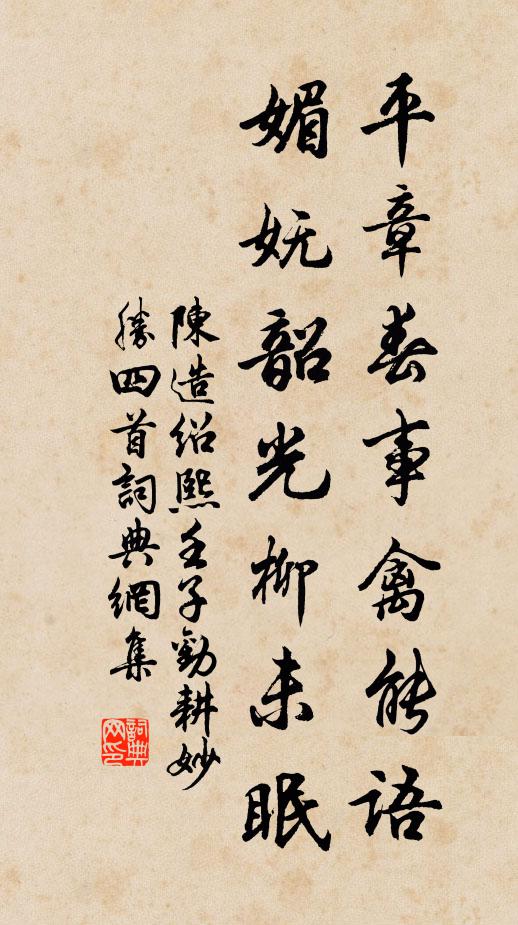 平章春事禽能語
媚妩韶光柳未眠
陳造紹熙壬子勸耕妙
勝四首詞典網集
詞典网印